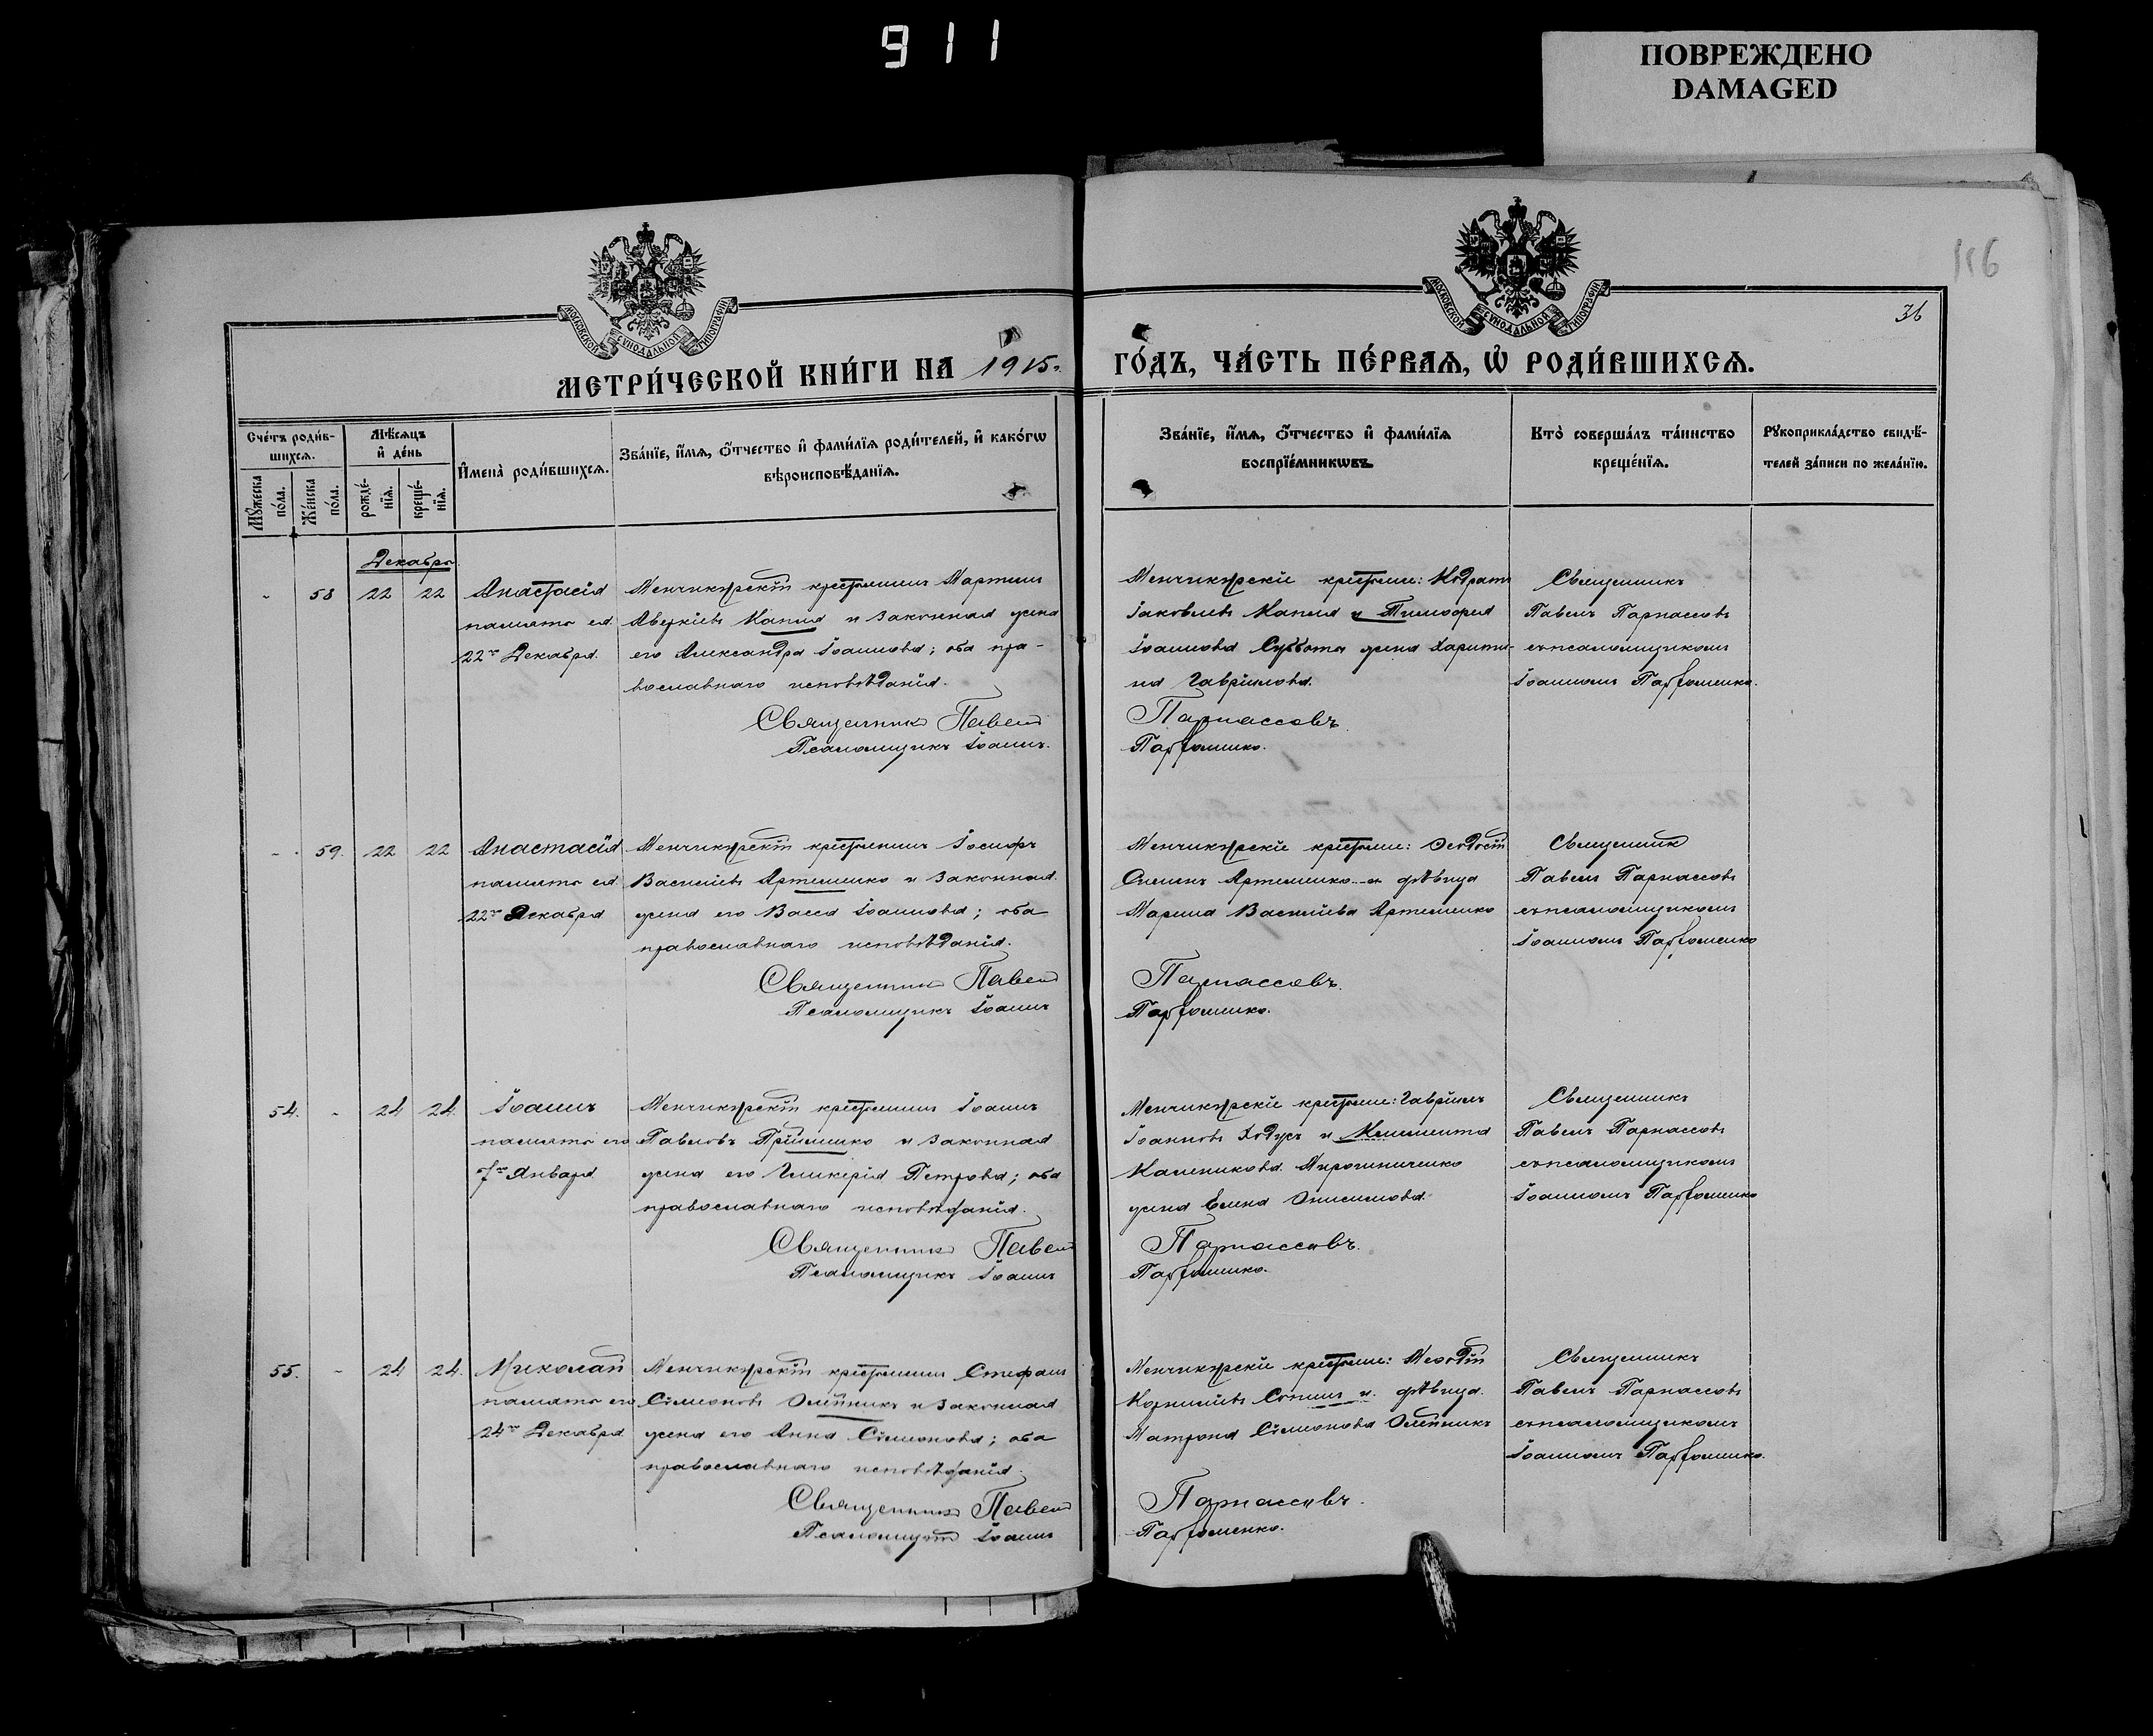 911
ПОВРЕЖДЕНО
DAMAGED
116
36
МОСКОВСКОЙ СѴНОДАЛЬНОЙ ТИПОГРАФІИ
МОСКОВСКОЙ СѴНОДАЛЬНОЙ ТИПОГРАФІИ
МЕТРИ́ЧЕСКОЙ КНИ́ГИ НА 1915 г.
ГО́ДЪ, ЧА́СТЬ ПЕ́РВАѦ, Ѡ҆ РОДИ́ВШИХСѦ.
Сче́тъ роди́в-
шихсѧ.
Мꙋ́жеска по́ла.
Же́нска по́ла.
Мѣ́сѧцъ
и҆ де́нь
рожде́-
нїѧ.
креще́-
нїѧ.
И҆мена̀ роди́вшихсѧ.
Зва́нїе, и҆́мѧ, ѻ҆́тчество и҆ фами́лїѧ роди́телей, и҆ како́гѡ
вѣроисповѣ́данїѧ.
Зва́нїе, и҆́мѧ, ѻ҆́тчество и҆ фами́лїѧ
воспрїе́мникѡвъ.
Кто̀ соверша́лъ та́инство
креще́нїѧ.
Рꙋкоприкла́дство свидѣ́-
телей за́писи по жела́нїю.
Декабрь
- 58 22 22
Анастасія
память ея
22го Декабря.
Менчикурскій крестьянинъ Мартинъ
Аверкіевъ Капля и законная жена
его Александра Іоаннова; оба пра-
вославнаго исповѣданія.
Священникъ Павелъ
Псаломщикъ Іоаннъ.
Менчикурскіе крестьяне: Кодратъ
Іаковлевъ Капля и Тимофея
Іоаннова Субботы жена Харити-
на Гавріилова.
Парнассовъ.
Парфоменко.
Священникъ
Павелъ Парнассовъ
съ псаломщикомъ
Іоанномъ Парфоменко.
- 59. 22 22
Анастасія
память ея
22го Декабря
Менчикурскій крестьянинъ Іосифъ
Васильевъ Артеменко и законная
жена его Васса Іоаннова; оба
православнаго исповѣданія.
Священникъ Павелъ
Псаломщикъ Іоаннъ
Менчикурскіе крестьяне: Ѳеодосій
Артеменко и дѣвица
Марина Васильева Артеменко
Парнассовъ.
Парфоменко.
Священникъ
Павелъ Парнассовъ
съ псаломщикомъ
Іоанномъ Парфоменко
54. - 24 24
Іоаннъ
память его
7го Января
Менчикурскій крестьянинъ Іоаннъ
Павловъ Пріименко и законная
жена его Гликерія Петрова; оба
православнаго исповѣданія.
Священникъ Павелъ
Псаломщикъ Іоаннъ
Менчикурскіе крестьяне: Гавріилъ
Іоанновъ Ходусъ и Климента
Каленикова Мирошниченко
жена Елена Онисимова
Парнассовъ.
Парфоменко.
Священникъ
Павелъ Парнассовъ
съ псаломщикомъ
Іоанномъ Парфоменко
55. - 24 24.
Николай
память его
24го Декабря
Менчикурскій крестьянинъ Стефанъ
Симоновъ Олейникъ и законная
жена его Анна Симонова; оба
православнаго исповѣданія.
Священникъ Павелъ
Псаломщикъ Іоаннъ
Менчикурскіе крестьяне: Меѳодій
Корнилієвъ и дѣвица
Матрона Симонова Олейникъ
Парнассовъ.
Парфоменко.
Священникъ
Павелъ Парнассовъ
съ псаломщикомъ
Іоанномъ Парфоменко.